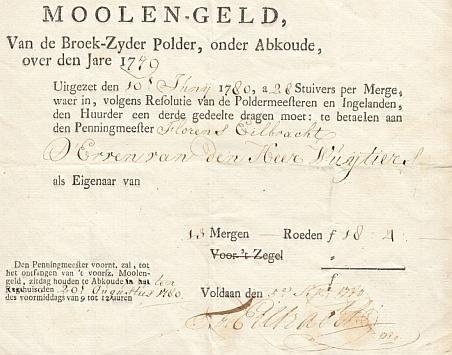 MOOLEN-GELD,
Van de Broek-Zyder Polder, onder Abkoude,
over den Jare 1749
Uitgezet den 10e Junij 1780, a 28 Stuivers per Merge,
waer in, volgens Resolutie van de Poldermeesteren en Ingelanden,
den Huurder een derde gedeelte dragen moet: te betaelen aan
den Penningmeester Florens Eilbracht
D'Erven van den Heer Wuijtiers
als Eigenaar van
13 Mergen Roeden f 18 - 4
Voor 't Zegel
f
Den Penningmeester voornt, zal, tot
het ontfangen van 't voorsz. Moolen-
geld, zitdag houden te Abkoude in het
20e Augustus 1780
des voormiddags van 9 tot 12 uuren
Voldaan den 5e Sept 1780
F. Eilbracht